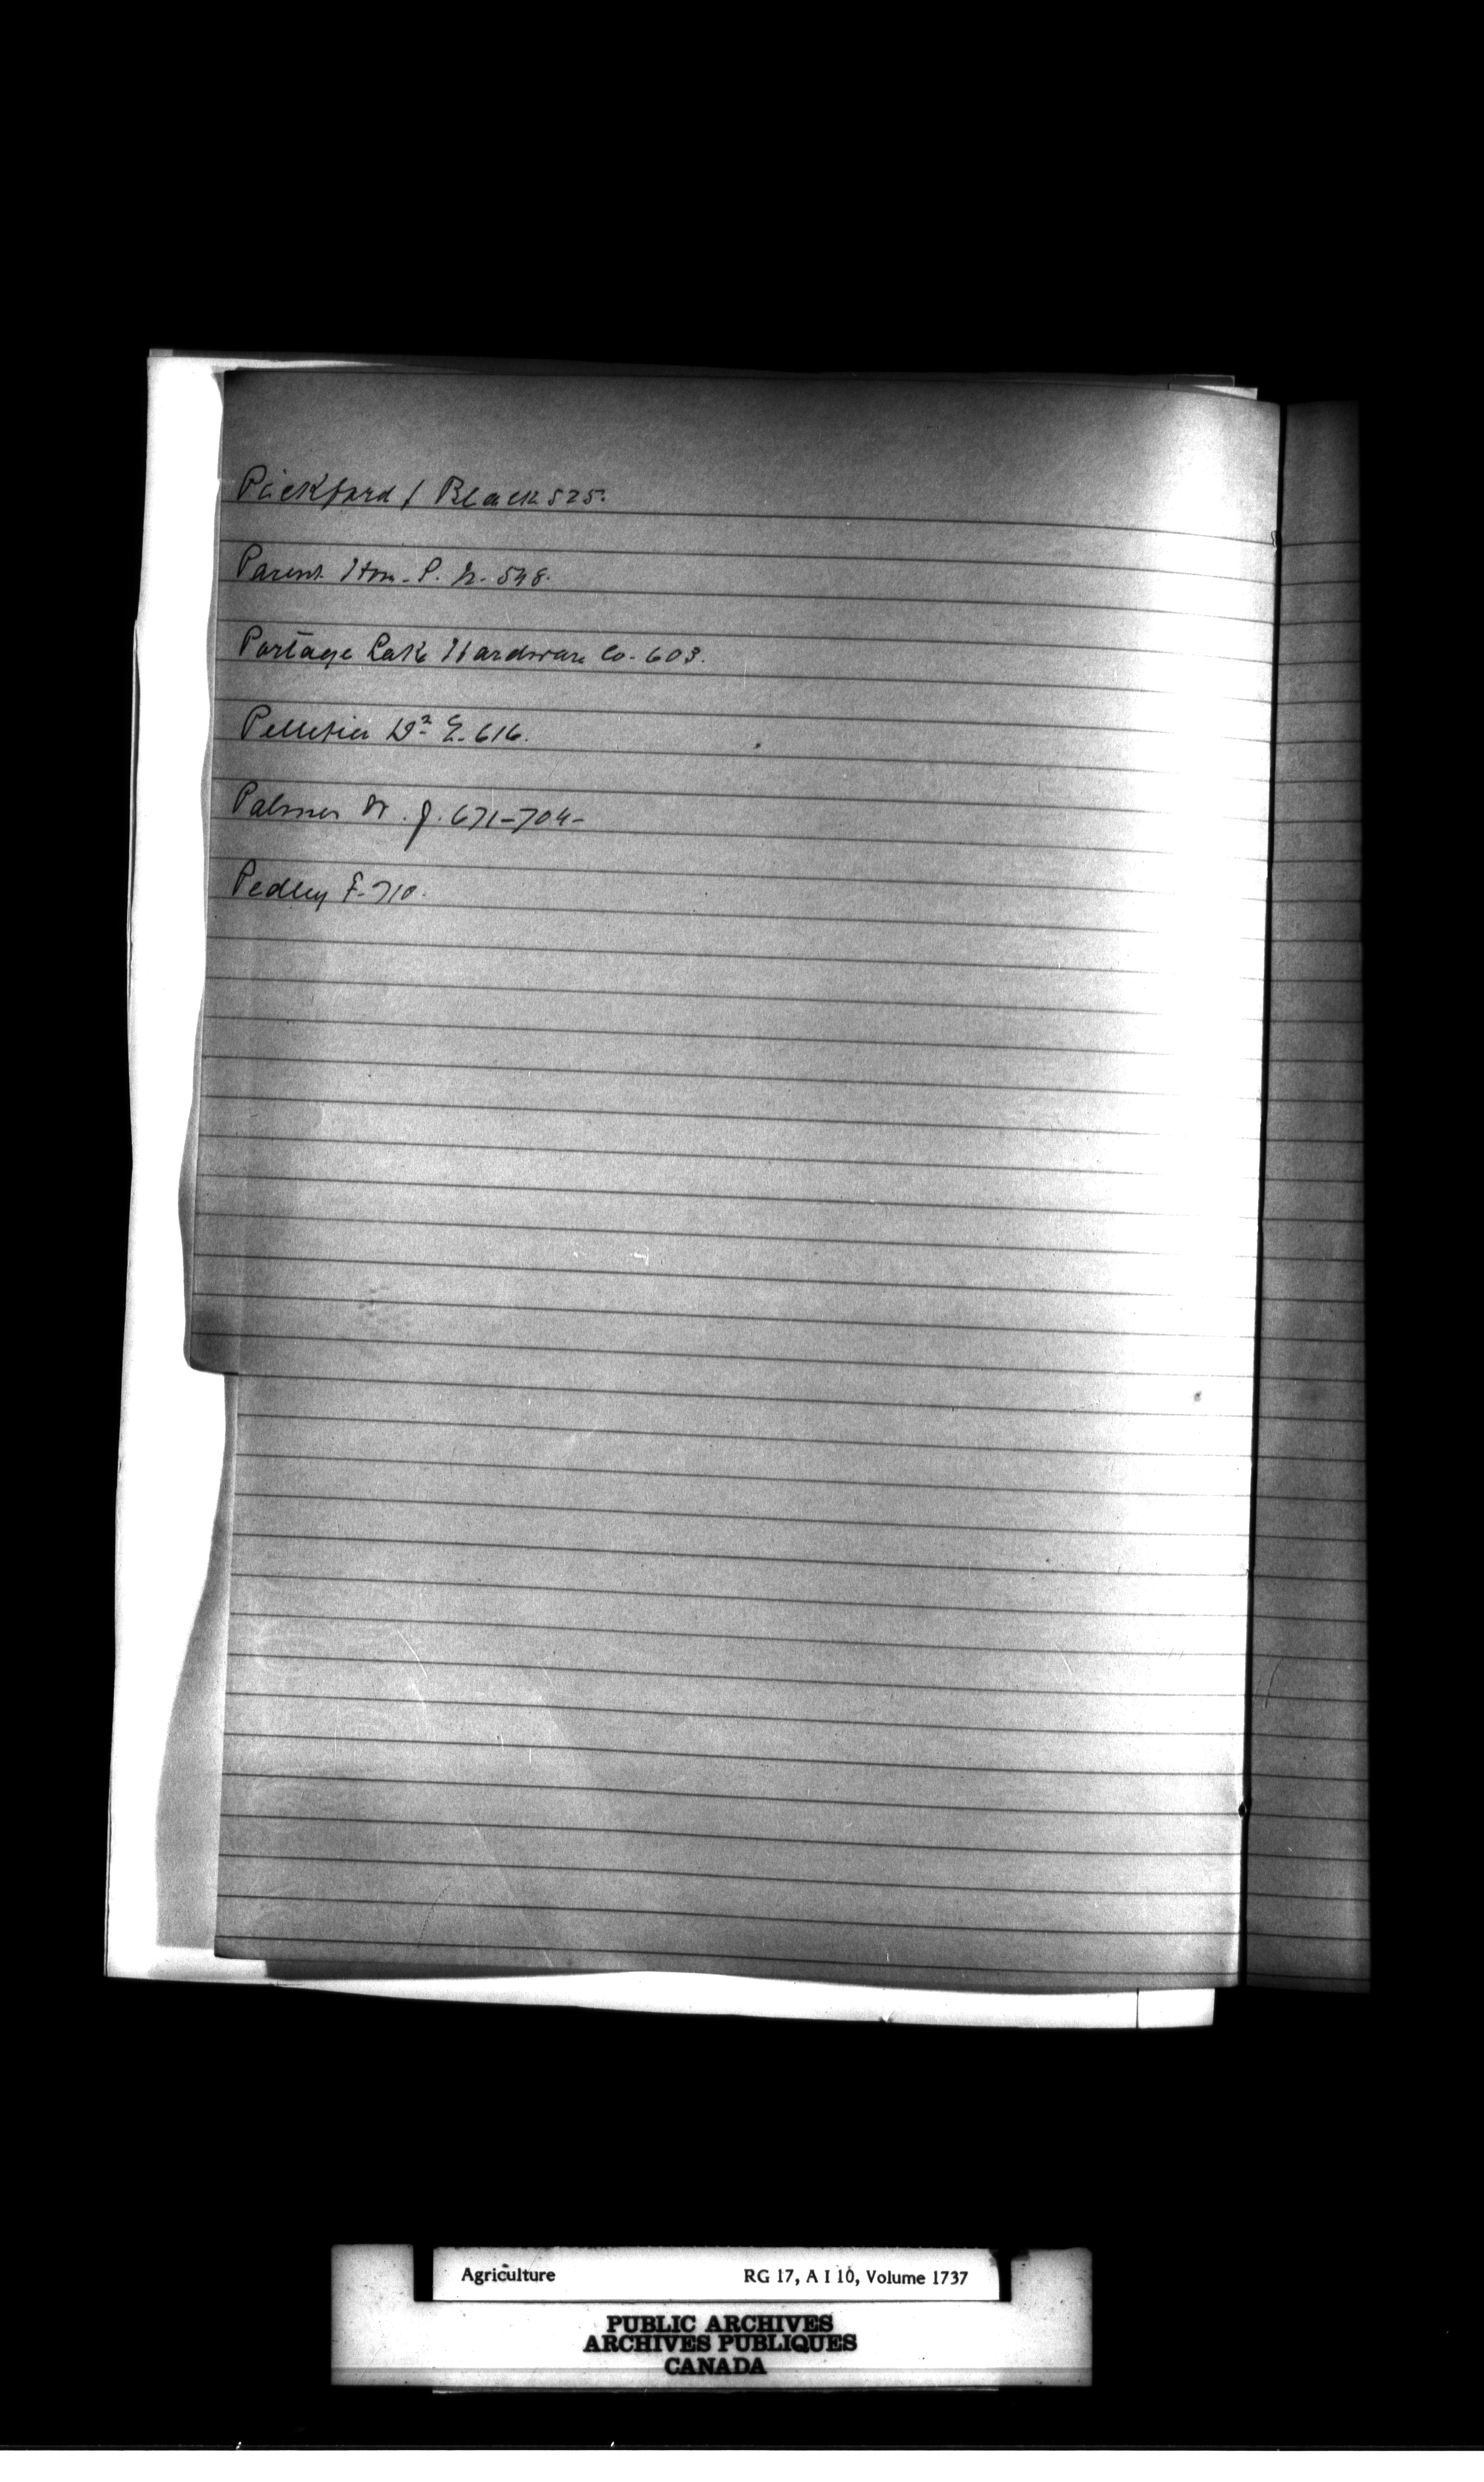 Pickford & Black 525.
Parent Hon. S. N. 548.
Portage Lake Hardware Co. 603.
Pelletier Dr. E. 616.
Palmer W. J. 671-704-
Pedley F. 710.
Agriculture RG 17, A I 10, Volume 1737
PUBLIC ARCHIVES
ARCHIVES PUBLIQUES
CANADA